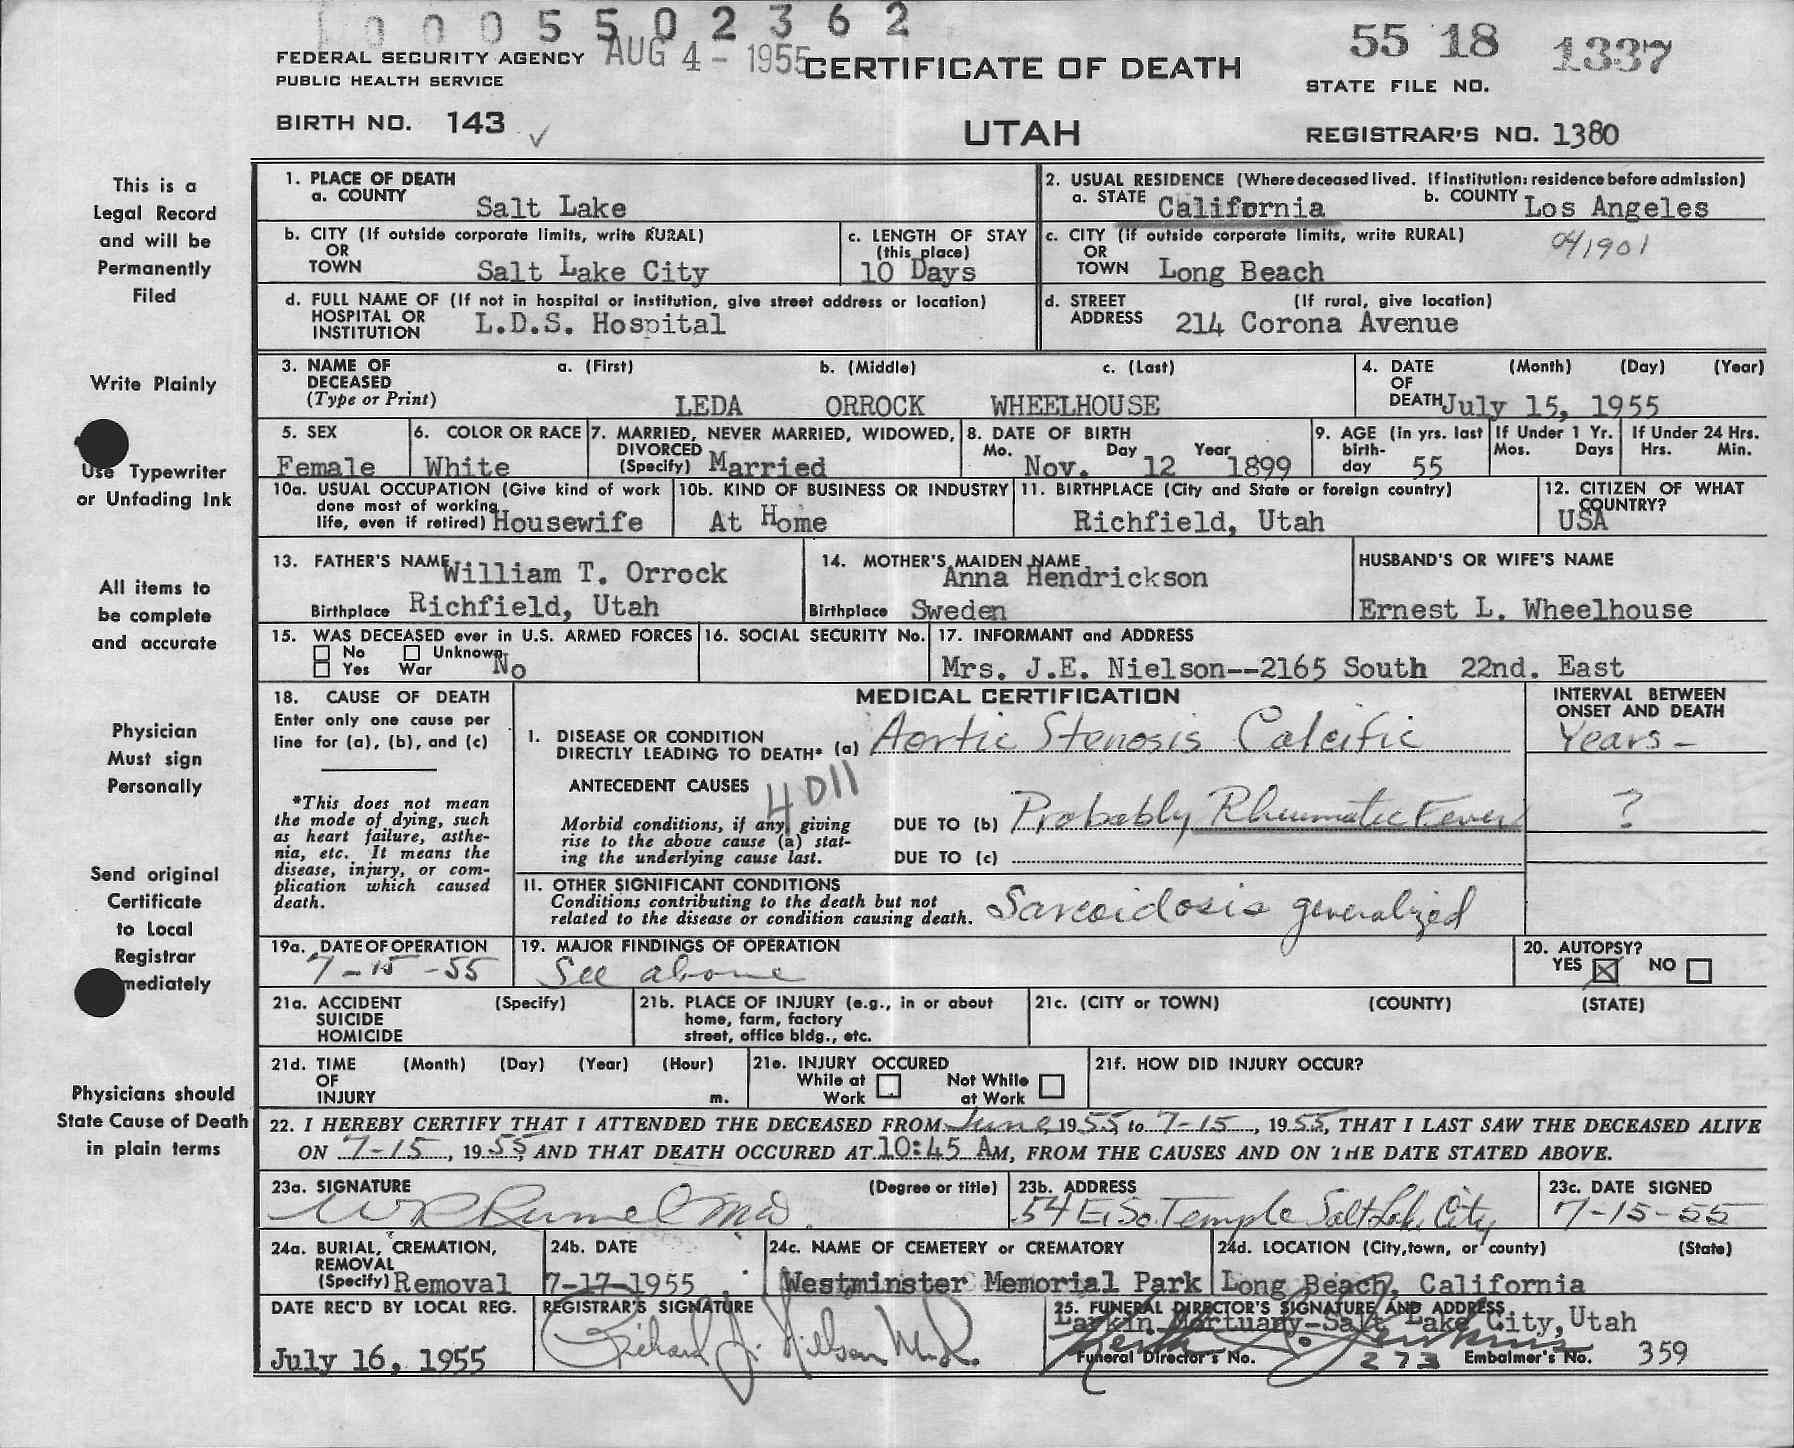 0005502362
FEDERAL SECURITY AGENCY AUG 4 - 1955 CERTIFICATE OF DEATH 55 18 1337
PUBLIC HEALTH SERVICE STATE FILE NO.
BIRTH NO. 143 ✓ UTAH REGISTRAR'S NO. 1380
This is a
Legal Record
and will be
Permanently
Filed
Write Plainly
Use Typewriter
or Unfading Ink
All items to
be complete
and accurate
Physician
Must sign
Personally
Send original
Certificate
to Local
Registrar
mediately
Physicians should
State Cause of Death
in plain terms
1. PLACE OF DEATH
a. COUNTY Salt Lake
2. USUAL RESIDENCE (Where deceased lived. If institution: residence before admission)
a. STATE California b. COUNTY Los Angeles
b. CITY (If outside corporate limits, write RURAL)
OR
TOWN Salt Lake City
c. LENGTH OF STAY
(this place)
10 Days
c. CITY (if outside corporate limits, write RURAL) 041901
OR
TOWN Long Beach
d. FULL NAME OF (If not in hospital or institution, give street address or location)
HOSPITAL OR
INSTITUTION L.D.S. Hospital
d. STREET (If rural, give location)
ADDRESS 214 Corona Avenue
3. NAME OF a. (First) b. (Middle) c. (Last)
DECEASED
(Type or Print) LEDA ORROCK WHEELHOUSE
4. DATE (Month) (Day) (Year)
OF
DEATH July 15, 1955
5. SEX
Female
6. COLOR OR RACE
White
7. MARRIED, NEVER MARRIED, WIDOWED,
DIVORCED
(Specify) Married
8. DATE OF BIRTH
Mo. Day Year
Nov. 12 1899
9. AGE (in yrs. last
birth-
day 55
If Under 1 Yr.
Mos. Days
If Under 24 Hrs.
Hrs. Min.
10a. USUAL OCCUPATION (Give kind of work
done most of working
life, even if retired) Housewife
10b. KIND OF BUSINESS OR INDUSTRY
At Home
11. BIRTHPLACE (City and State or foreign country)
Richfield, Utah
12. CITIZEN OF WHAT
COUNTRY?
USA
13. FATHER'S NAME William T. Orrock
Birthplace Richfield, Utah
14. MOTHER'S MAIDEN NAME Anna Hendrickson
Birthplace Sweden
HUSBAND'S OR WIFE'S NAME
Ernest L. Wheelhouse
15. WAS DECEASED ever in U.S. ARMED FORCES
☐ No ☐ Unknown
☐ Yes War No
16. SOCIAL SECURITY No.
17. INFORMANT and ADDRESS
Mrs. J.E. Nielson--2165 South 22nd. East
18. CAUSE OF DEATH
Enter only one cause per
line for (a), (b), and (c)
*This does not mean
the mode of dying, such
as heart failure, asthe-
nia, etc. It means the
disease, injury, or com-
plication which caused
death.
MEDICAL CERTIFICATION
INTERVAL BETWEEN
ONSET AND DEATH
I. DISEASE OR CONDITION
DIRECTLY LEADING TO DEATH* (a) Aortic Stenosis Calcific Years -
ANTECEDENT CAUSES 4011
Morbid conditions, if any, giving
rise to the above cause (a) stat-
ing the underlying cause last.
DUE TO (b) Probably Rheumatic Fever ?
DUE TO (c)
II. OTHER SIGNIFICANT CONDITIONS
Conditions contributing to the death but not
related to the disease or condition causing death. Sarcoidosis generalized
19a. DATE OF OPERATION
7-15-55
19. MAJOR FINDINGS OF OPERATION
See above
20. AUTOPSY?
YES ☒ NO ☐
21a. ACCIDENT (Specify)
SUICIDE
HOMICIDE
21b. PLACE OF INJURY (e.g., in or about
home, farm, factory
street, office bldg., etc.
21c. (CITY or TOWN) (COUNTY) (STATE)
21d. TIME (Month) (Day) (Year) (Hour)
OF
INJURY m.
21e. INJURY OCCURED
While at Work ☐ Not While at Work ☐
21f. HOW DID INJURY OCCUR?
22. I HEREBY CERTIFY THAT I ATTENDED THE DECEASED FROM June, 1955, to 7-15, 1955, THAT I LAST SAW THE DECEASED ALIVE
ON 7-15, 1955, AND THAT DEATH OCCURED AT 10:45 AM, FROM THE CAUSES AND ON THE DATE STATED ABOVE.
23a. SIGNATURE (Degree or title)
WR Rumel MD.
23b. ADDRESS
54 E. So. Temple Salt Lake City
23c. DATE SIGNED
7-15-55
24a. BURIAL, CREMATION,
REMOVAL
(Specify) Removal
24b. DATE
7-17-1955
24c. NAME OF CEMETERY or CREMATORY
Westminster Memorial Park
24d. LOCATION (City, town, or county) (State)
Long Beach, California
DATE REC'D BY LOCAL REG.
July 16, 1955
REGISTRAR'S SIGNATURE
Richard J. Nelson M.D.
25. FUNERAL DIRECTOR'S SIGNATURE AND ADDRESS
Larkin Mortuary-Salt Lake City, Utah
Funeral Director's No. 273 Embalmer's No. 359